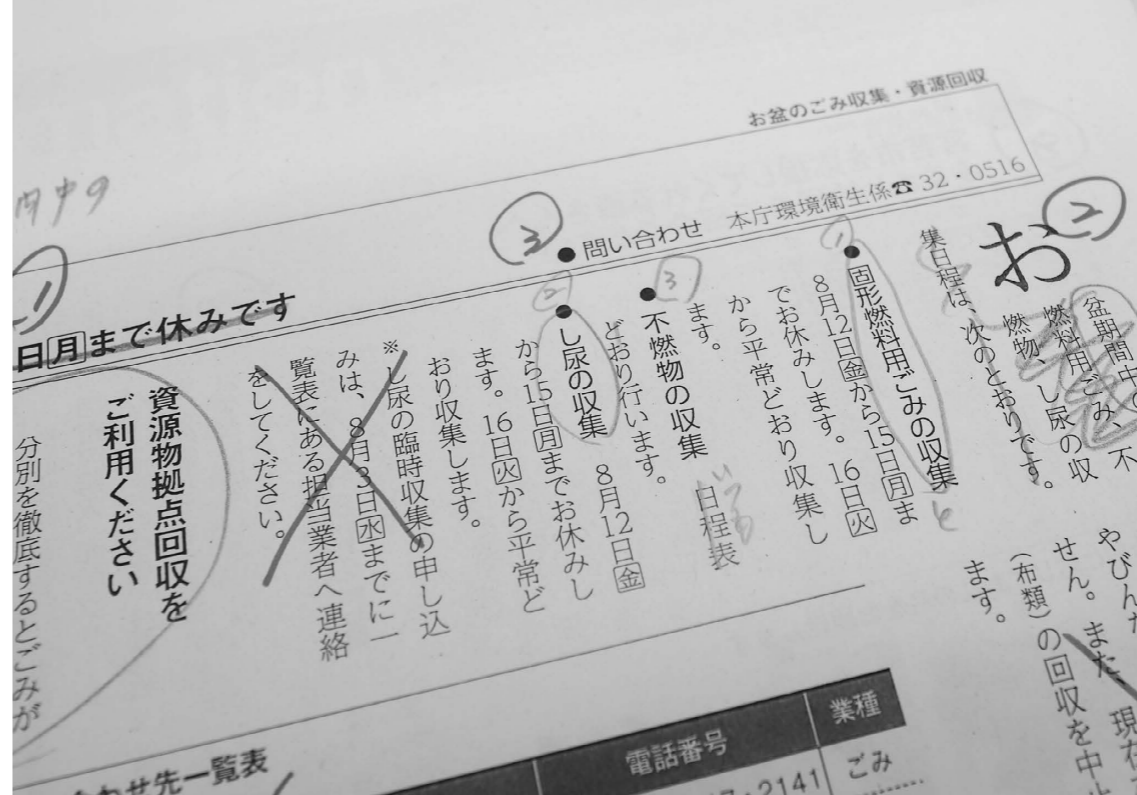 お盆のごみ収集・資源回収
●問い合わせ 本庁環境衛生係☎32・0516
②
お
盆期間中の
燃料用ごみ、不
燃物、し尿の収
集日程は、次のとおりです。
①
●固形燃料用ごみの収集
と
8月12日金から15日月ま
でお休みします。16日火
から平常どおり収集し
ます。
③
●不燃物の収集 日程表
どおり行います。
③
②
●し尿の収集 8月12日金
から15日月までお休みし
ます。16日火から平常ど
おり収集します。
※し尿の臨時収集の申し込
みは、8月3日水までに一
覧表にある担当業者へ連絡
をしてください。
中の
①
日月まで休みです
資源物拠点回収を
ご利用ください
分別を徹底するとごみが
やびんな
せん。また、現在
(布類)の回収を中止
ます。
わせ先一覧表
電話番号
業種
2141
ごみ